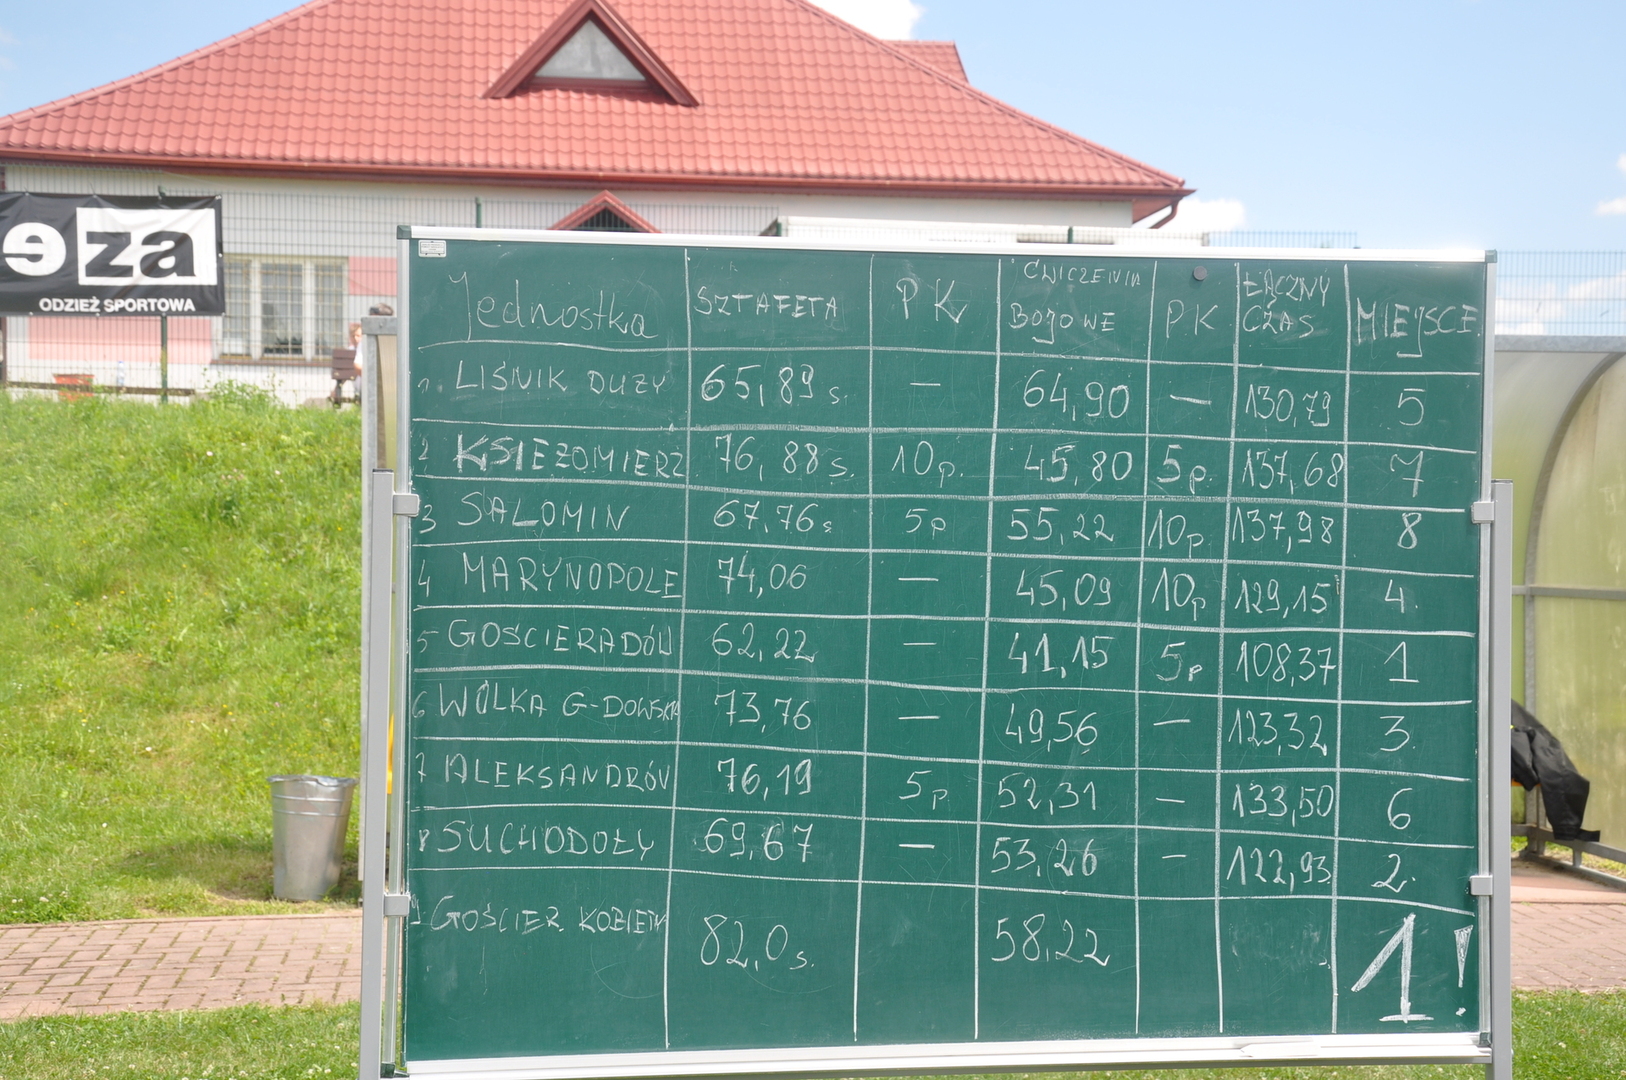 eza
ODZIEŻ SPORTOWA
Jednostka SZTAFETA PK ĆWICZENIA BOJOWE PK ŁĄCZNY CZAS MIEJSCE
1. LIŚNIK DUŻY 65,89 s. — 64,90 — 130,79 5
2 KSIĘŻOMIERZ 76,88 s. 10p. 45,80 5p. 137,68 7
3 SALOMIN 67,76 s 5p 55,22 10p 137,98 8
4 MARYNOPOLE 74,06 — 45,09 10p 129,15 4.
5 GOŚCIERADÓW 62,22 — 41,15 5p 108,37 1
6 WÓLKA G-DOWSKA 73,76 — 49,56 — 123,32 3.
7 ALEKSANDRÓW 76,19 5p 52,31 — 133,50 6
8 SUCHODOŁY 69,67 — 53,26 — 122,93 2.
9 GOŚCIER. KOBIETY 82,0 s. 58,22 1!